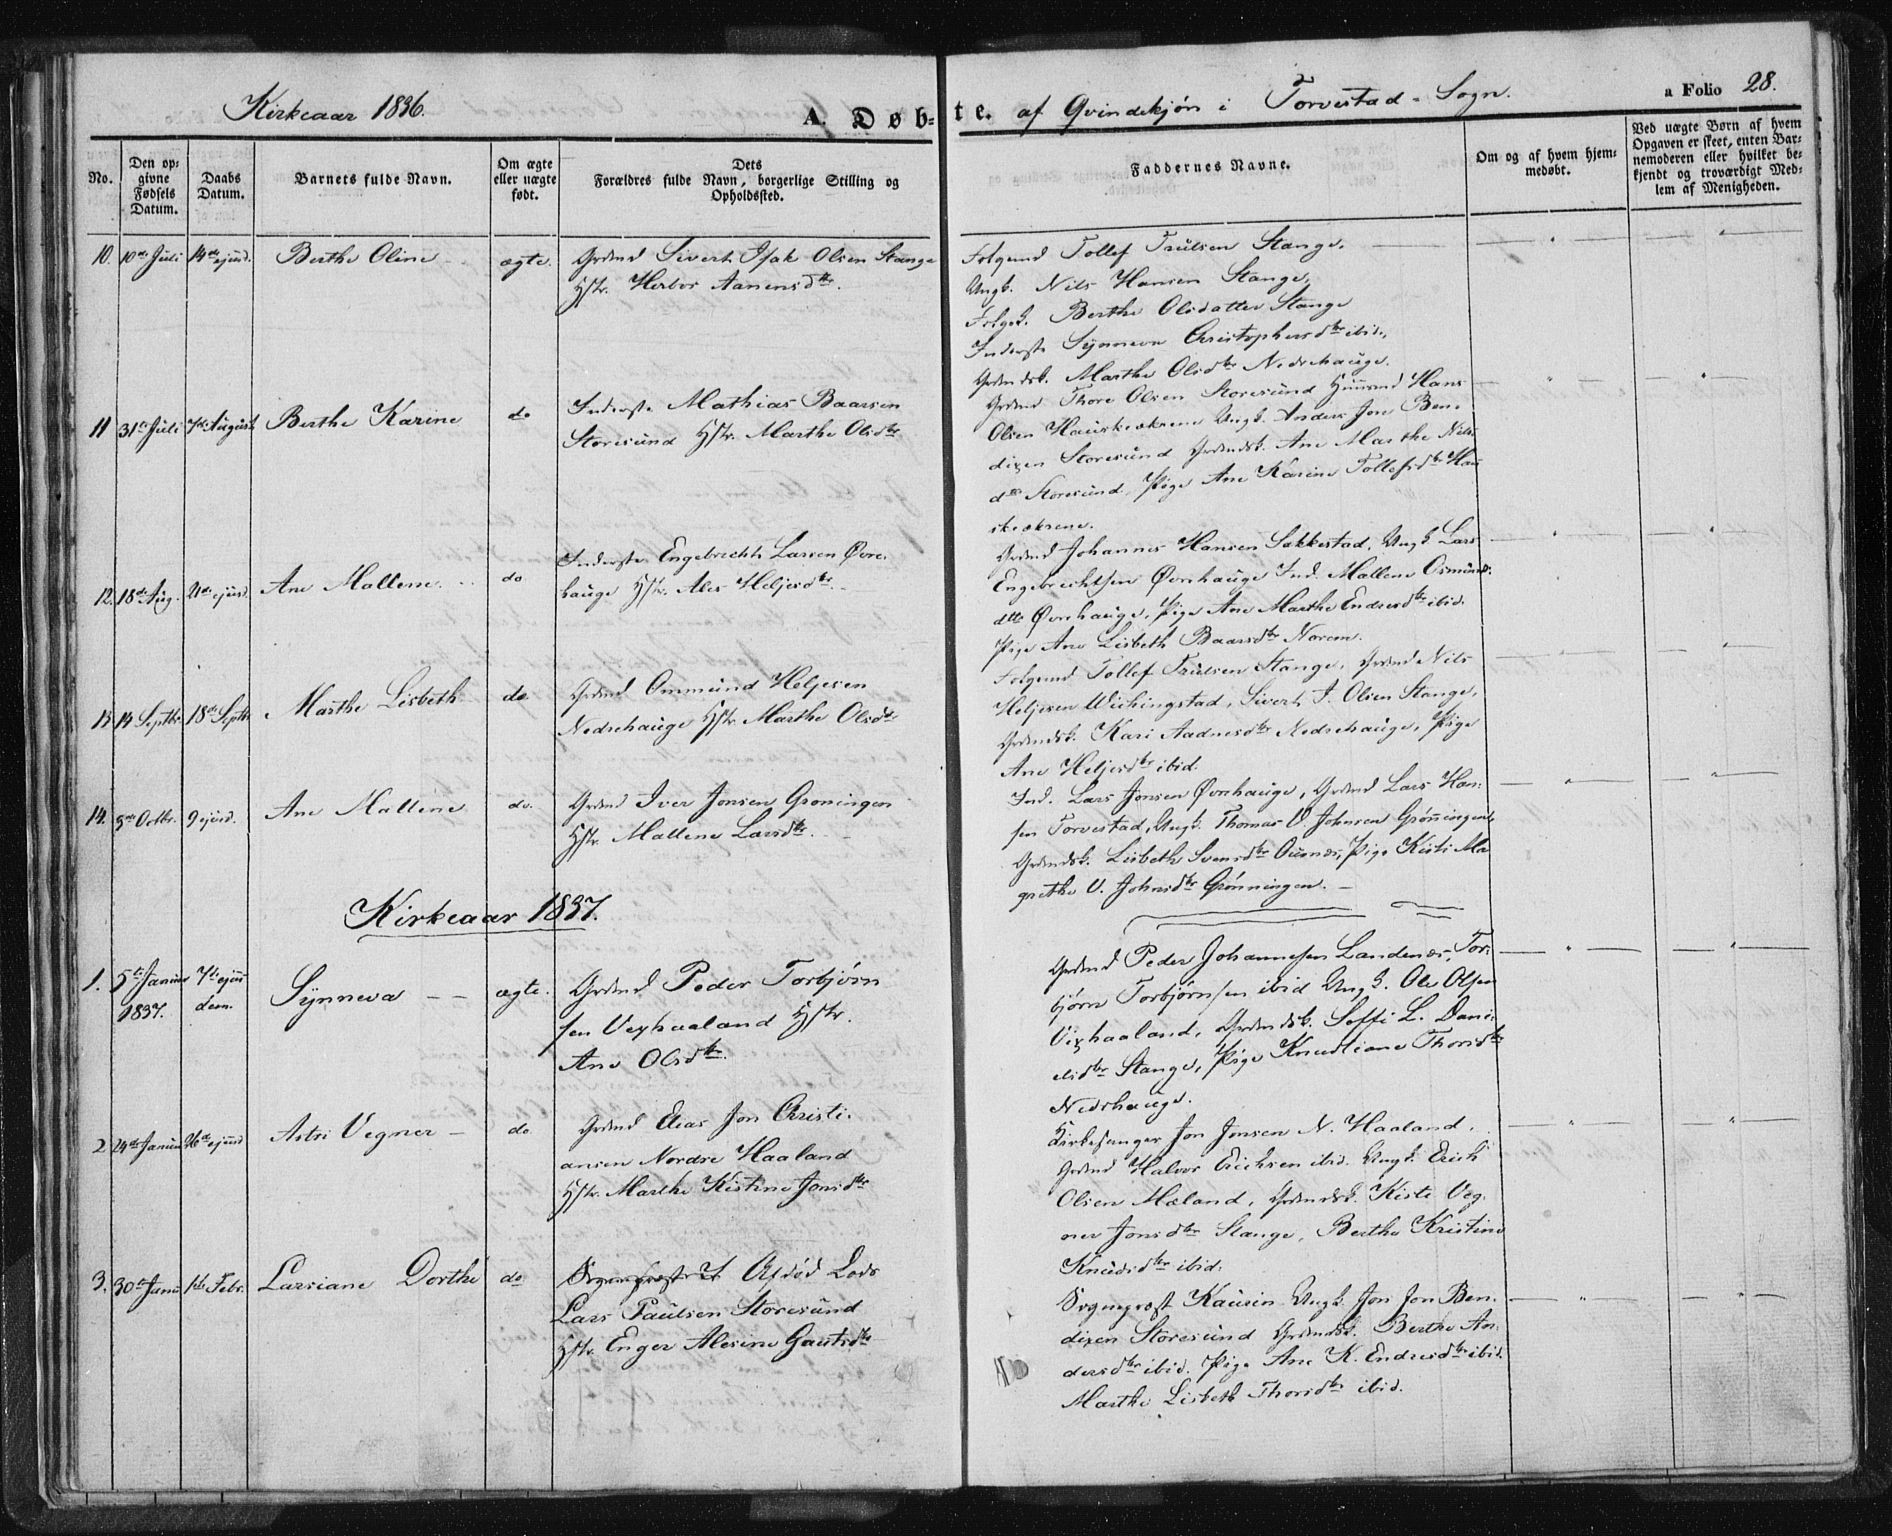 Kirkeaar 1836.
A. Døbte. af Qvindekjøn i Torvestad-Sogn.
a Folio 28.
No.
Den opgivne Fødsels Datum.
Daabs Datum.
Barnets fulde Navn.
Om ægte eller uægte født.
Dets Forældres fulde Navn, borgerlige Stilling og Opholdssted.
Faddernes Navne.
Om og af hvem hjemmedøbt.
Ved uægte Børn af hvem Opgaven er skeet, enten Barnemoderen eller hvilket bekjendt og troværdigt Medlem af Menigheden.
10. 10de Juli 14de ejusd. Berthe Oline ægte.
Grdmd Sivert Isak Olsen Stange
Hstr. Herbor Aanensdtr.
Folgemd Tollef Trulsen Stange,
Ungk. Nils Hansen Stange,
Folgek. Berthe Olsdatter Stange
Inderste Synneva Christophersdtr ibid.,
Grdmdsk. Marthe Olsdtr Nedrehauge.
11 31te Juli 7de August Berthe Karine do
Inderste Mathias Baarsen
Storesund Hstr. Marthe Olsdtr
Grdmd Thore Olsen Storesund Huusmd Hans
Olsen Hauskeakrene Ungk. Anders Jon Ben-
dixen Storesund Grdmdsk. Ane Marthe Nils
dtr Storesund, Pige Ane Karine Tollefsdtr Hau
skeakrene.
12. 18de Aug. 21de ejusd. Ane Mallene do
Inderste Engebrecht Larsen Øvre-
hauge Hstr. Ales Heljesdtr.
Grdmd Johannes Hansen Sakkestad, Ungk Lars
Engebrechtsen Øvrehauge Ind. Mallene Osmunds-
dtr Øvrehauge, Pige Ane Marthe Endresdtr ibid.
Pige Ane Lisbeth Baarsdtr Norem.
13 13 Septbr. 18de Septbr Marthe Lisbeth do
Grdmd Ommund Heljesen
Nedrehauge Hstr. Marthe Olsdtr
Folgemd Tollef Trulsen Stange, Grdmd Nils
Heljesen Wichingstad, Sivert I. Olsen Stange,
Grdmdsk. Kari Aadnesdtr Nedrehauge, Pige
Ane Heljesdtr ibid.
14. 3de Octbr. 9 ejusd. Ane Mallene do.
Grdmd Iver Jonsen Groningen
Hstr. Mallene Larsdtr.
Ind. Lars Jonsen Øvrehauge, Grdmd Lars Han-
sen Torvestad, Ungk. Thomas V Johnsen Grønningen,
Grdmdsk. Lisbeth Svensdtr Ousnes, Pige Kisti Ma
grethe V. Johnsdtr Grønningen.
Kirkeaar 1837.
1. 5te Januar 1837. 7de ejusdem. Synneva ægte.
Grdmd Peder Torbjørn
sen Vexhaaland Hstr.
Ane Olsdtr.
Grdmd Peder Johannesen Landenes, Tor-
bjørn Torbjørnsen ibid Ungk. Ole Olsen
Vixhaaland, Grdmdsk. Soffi L. Dani-
elsdtr Stange, Pige Knudtiane Thorsdtr
Nedrhauge.
2 24de Januar 26de ejusd Astri Vegner do
Grdmd Elias Jon Christi-
ansen Nordre Haaland
Hstr. Marthe Kistine Jonsdtr
Kirkesanger Jon Jonsen N. Haaland,
Grdmd Halvor Erichsen ibid. Ungk. Erich
Olsen Mæland, Grdmdsk. Kisti Veg-
ner Jonsdtr Stange, Berthe Kristine
Knudsdtr ibid.
3. 30te Janu 1ste Febr. Larsiane Dorthe do
Afdød Lods
Lars Paulsen Storesund
Hstr. Enger Alesine Gautsdtr
Sognepræst Kaurin Ungk. Jon Jon Ben-
dixen Storesund Grdmdsk. Berthe An-
dersdtr ibid. Pige Ane K. Endresdtr ibid.
Marthe Lisbeth Thorsdtr ibid.